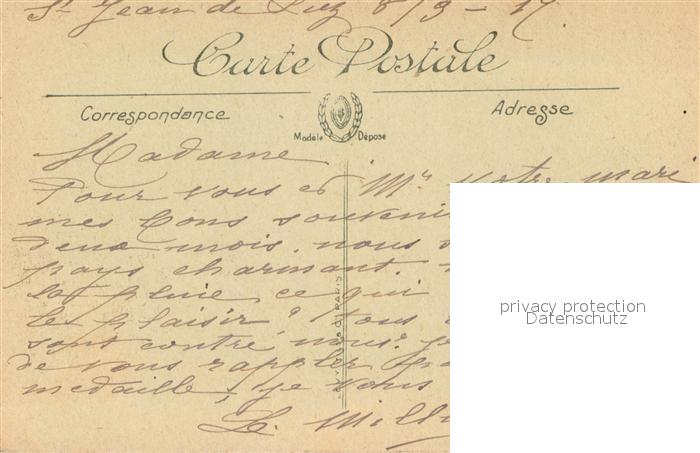 St Jean de Luz 8/9 - 17
Carte Postale
Correspondance
Adresse
Modèle Déposé
Madame
Pour vous et Mr votre mari
mes bons souveni
deux mois. nous
pays charmant.
la pluie, ce qui
le plaisir! tous
sont contre nous! je
de vous rappler
medaille, je vous
L. Mill
privacy protection
Datenschutz